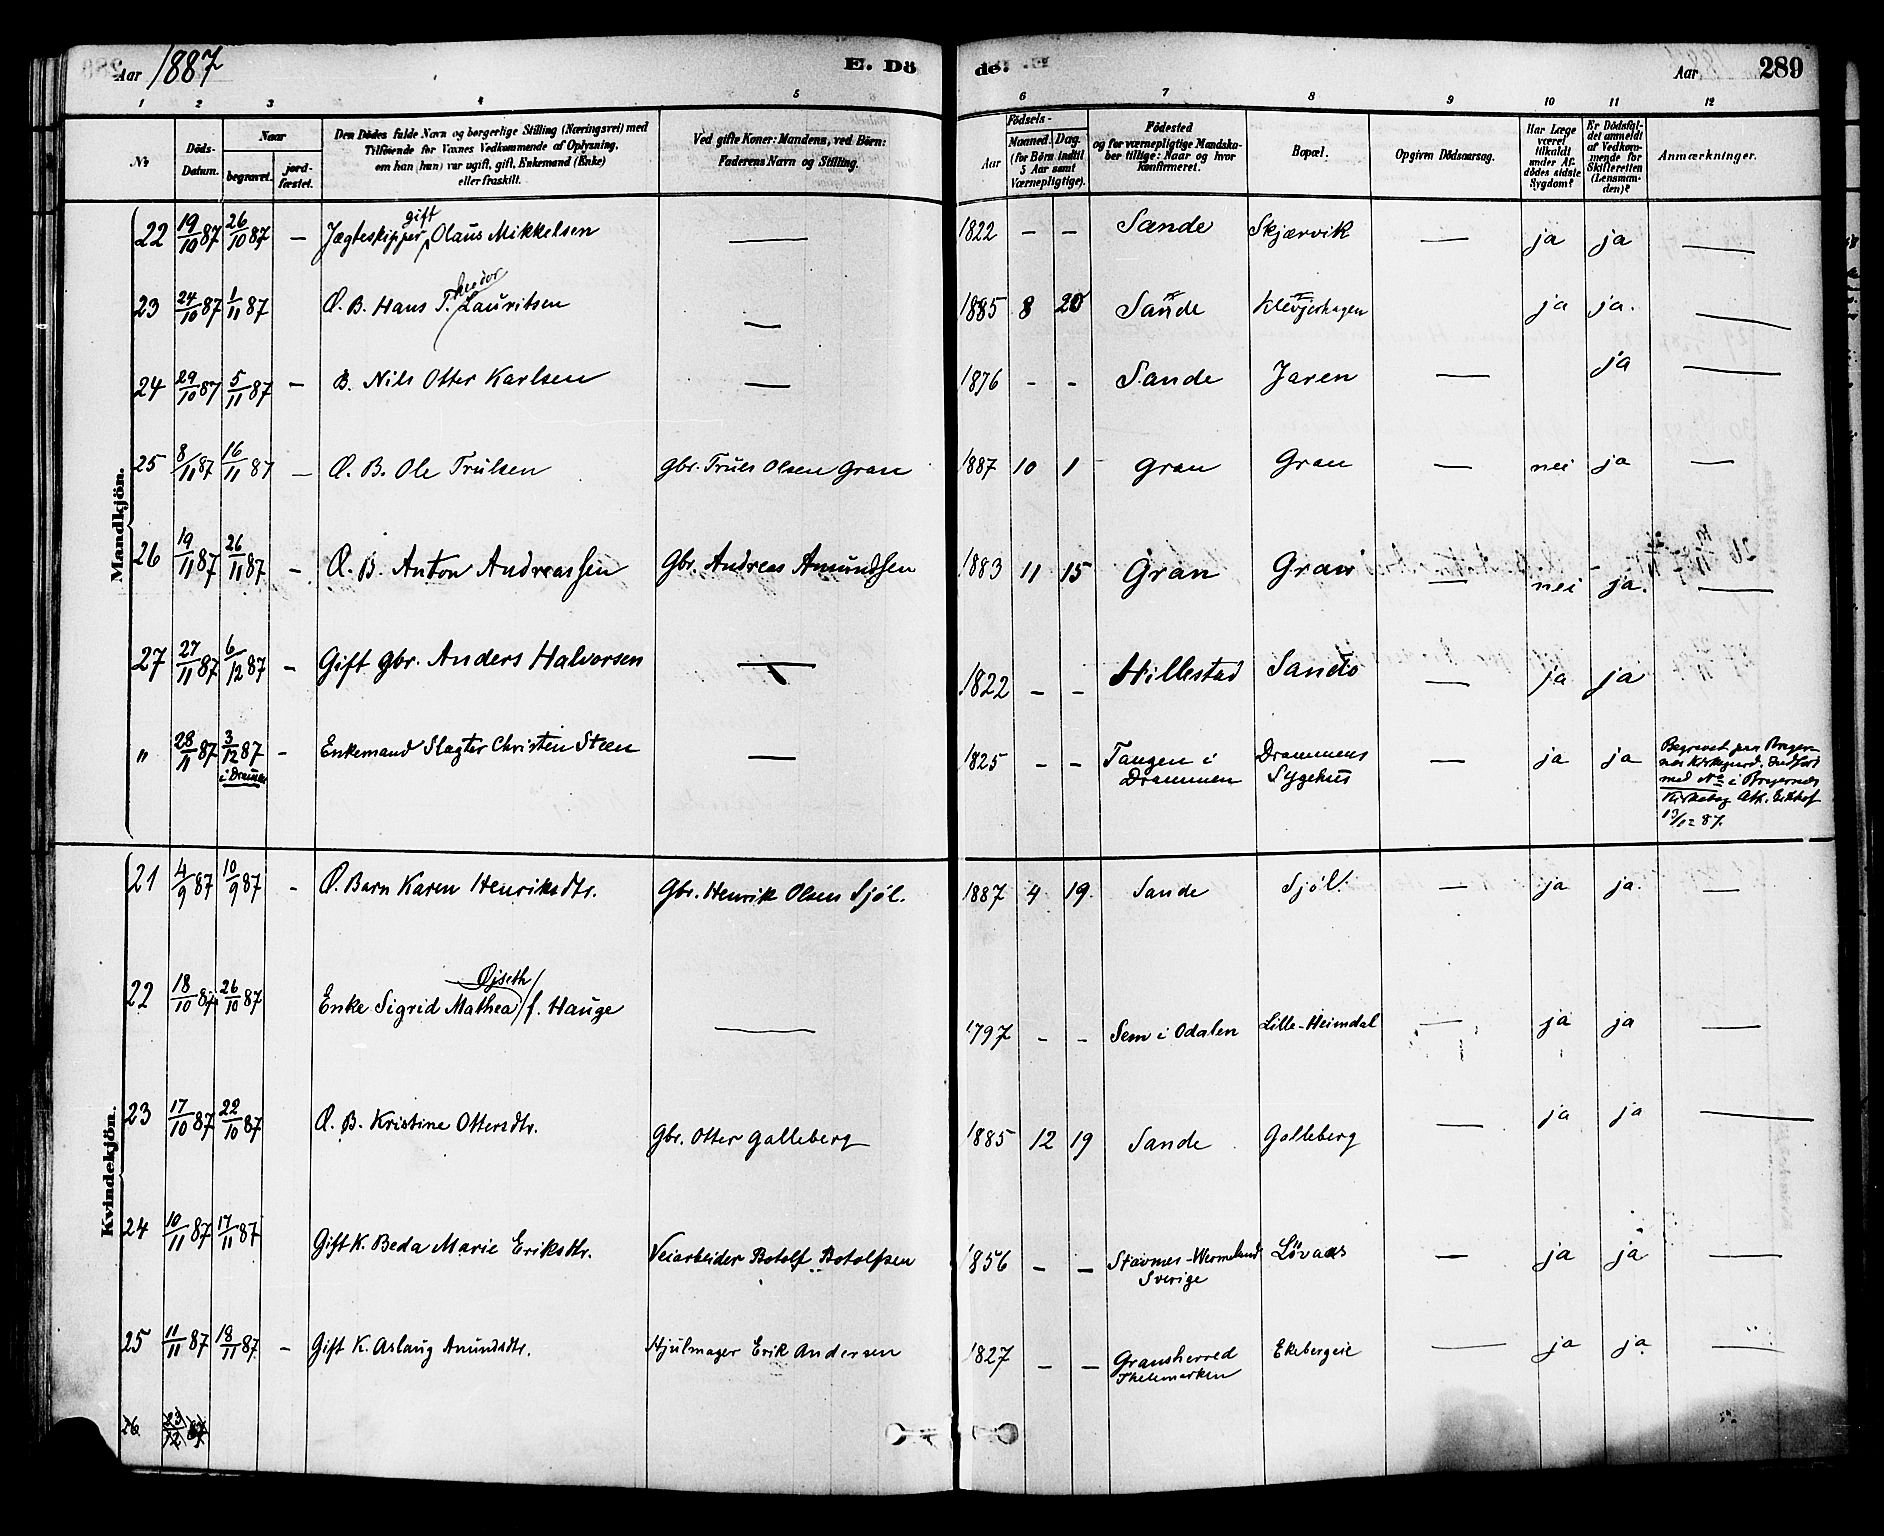 Aar 1887 E. Dö de. Aar 289
1 2 3 4 5 6 7 8 9 10 11 12
No
Döds-Datum.
Naar
begravet.
jord-fæstet.
Den Dödes fulde Navn og borgerlige Stilling (Næringsvei) med
Tilföiende for Voxnes Vedkommende af Oplysning,
om han (hun) var ugift, gift, Enkemand (Enke)
eller fraskilt.
Ved gifte Koner: Mandens, ved Börn:
Faderens Navn og Stilling.
Födsels-
Aar
Maaned. Dag.
(for Börn indtil
5 Aar samt
Værnepligtige).
Födested
og for værnepligtige Mandska-
ber tillige: Naar og hvor
Konfirmeret.
Bopæl.
Opgiven Dödsaarsag.
Har Læge
været
tilkaldt
under Af-
dödes sidste
Sygdom?
Er Dödsfal-
det anmeldt
af Vedkom-
mende for
Skifteretten
(Lensman-
den)?
Anmærkninger.
Mandkjön.
22 19/10 87 26/10 87 — Jægteskipper gift Olaus Mikkelsen — 1822 — — Sande Skjærvik — ja ja —
23 24/10 87 1/11 87 Æ. B. Hans Theodor Lauritsen — 1885 8 20 Sande Klevjerhagen ja ja. —
24 29/10 87 5/11 87 — B. Nils Otter Karlsen — 1876 - - Sande Jaren — ja —
25 8/11 87 16/11 87 — Æ. B. Ole Trulsen Gbr. Truls Olsen Gran 1887 10 1 Gran Gran — nei ja —
26 19/11 87 26/11 87 — Æ. B. Anton Andreassen Gbr. Andreas Amundsen 1883 11 15 Gran Gran — nei ja. —
27 27/11 87 6/12 87 — Gift Gbr. Anders Halvorsen — 1822 — — Hillestad Sando — ja ja
" 28/11 87 3/12 87 i Drammen — Enkemand Slagter Christen Steen — 1825 - - Tangen i Drammen Drammens Sygehus ja ja Begravet paa Brager-
nes Kirkegaard. Indført
med No i Bragernes
Kirkebog Att. Eckhof
13/12 87.
Kvindekjön.
21 4/9 87 10/9 87 - Æ. Barn Karen Henriksdtr. Gbr. Henrik Olsen Sjøl. 1887 4 19. Sande Sjøl. — ja ja. —
22 18/10 87 26/10 87 Enke Sigrid Mathea Øjseth f. Hauge — 1797 - - Sem i Odalen Lille-Heimdal — ja ja —
23 17/10 87 22/10 87 Æ. B. Kristine Ottersdtr. Gbr. Otter Galleberg 1885 12 19 Sande Galleberg — ja ja —
24 10/11 87 17/11 87 Gift K. Beda Marie Eriksdtr. Veiarbeider Botolf Botolfsen 1856 — — Stavnes-Wermeland Sverige Lövaas — ja ja —
25 11/11 87 18/11 87. — Gift K. Aslaug Amundsdtr. Hjulmager Erik Andersen 1827 — — Gransherred Thelemarken Ekebergeie — ja ja —
26. 23/12 87